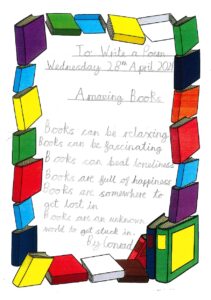 To: Write a Poem
Wednesday 28th April 202
Amazing Books
Books can be relaxing
Books can be fascinating
Books can beat loneliness
Books are full of happiness
Books are somewhere to
get lost in
Books are an unknown
world to get stuck in.
By Conrad